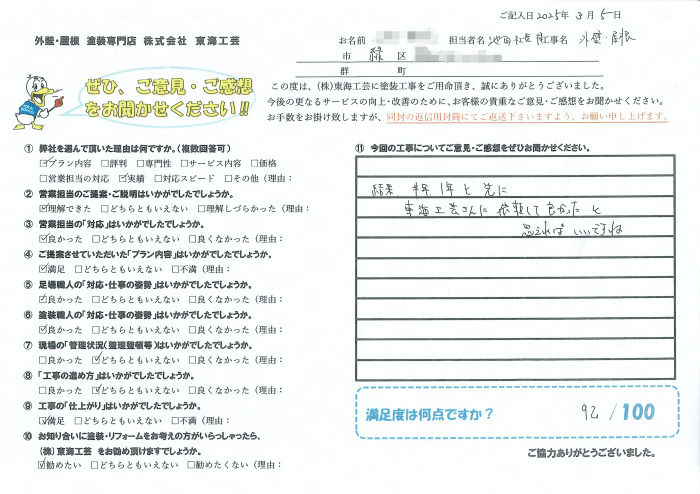 ご記入日 2025年 3月 5日
外壁・屋根 塗装専門店 株式会社 東海工芸
お名前 担当者名 池田社長 工事名 外壁・屋根
市 緑 区
郡 町
ぜひ、ご意見・ご感想
をお聞かせください!!
この度は、(株)東海工芸に塗装工事をご用命頂き、誠にありがとうございました。
今後の更なるサービスの向上・改善のために、お客様の貴重なご意見・ご感想をお聞かせください。
お手数をお掛け致しますが、同封の返信用封筒にてご返送下さいますよう、お願い申し上げます。
① 弊社を選んで頂いた理由は何ですか。(複数回答可)
☑プラン内容 □評判 □専門性 □サービス内容 □価格
□営業担当の対応 ☑実績 □対応スピード □その他(理由:
② 営業担当のご提案・ご説明はいかがでしたでしょうか。
☑理解できた □どちらともいえない □理解しづらかった(理由:
③ 営業担当の「対応」はいかがでしたでしょうか。
☑良かった □どちらともいえない □良くなかった(理由:
④ ご提案させていただいた「プラン内容」はいかがでしたでしょうか。
☑満足 □どちらともいえない □不満(理由:
⑤ 足場職人の「対応・仕事の姿勢」はいかがでしたでしょうか。
☑良かった □どちらともいえない □良くなかった(理由:
⑥ 塗装職人の「対応・仕事の姿勢」はいかがでしたでしょうか。
☑良かった □どちらともいえない □良くなかった(理由:
⑦ 現場の「管理状況(整理整頓等)はいかがでしたでしょうか。
□良かった ☑どちらともいえない □良くなかった(理由:
⑧ 「工事の進め方」はいかがでしたでしょうか。
□良かった ☑どちらともいえない □良くなかった(理由:
⑨ 工事の「仕上がり」はいかがでしたでしょうか。
☑満足 □どちらともいえない □不満(理由:
⑩ お知り合いに塗装・リフォームをお考えの方がいらっしゃったら、
(株)東海工芸 をお勧め頂けますでしょうか。
☑勧めたい □どちらともいえない □勧めたくない(理由:
⑪ 今回の工事についてご意見・ご感想をぜひお聞かせください。
結果、半年 1年と先に
東海工芸さんに依頼して良かったと
思えれば いいですね
満足度は何点ですか? 92 /100
ご協力ありがとうございました。